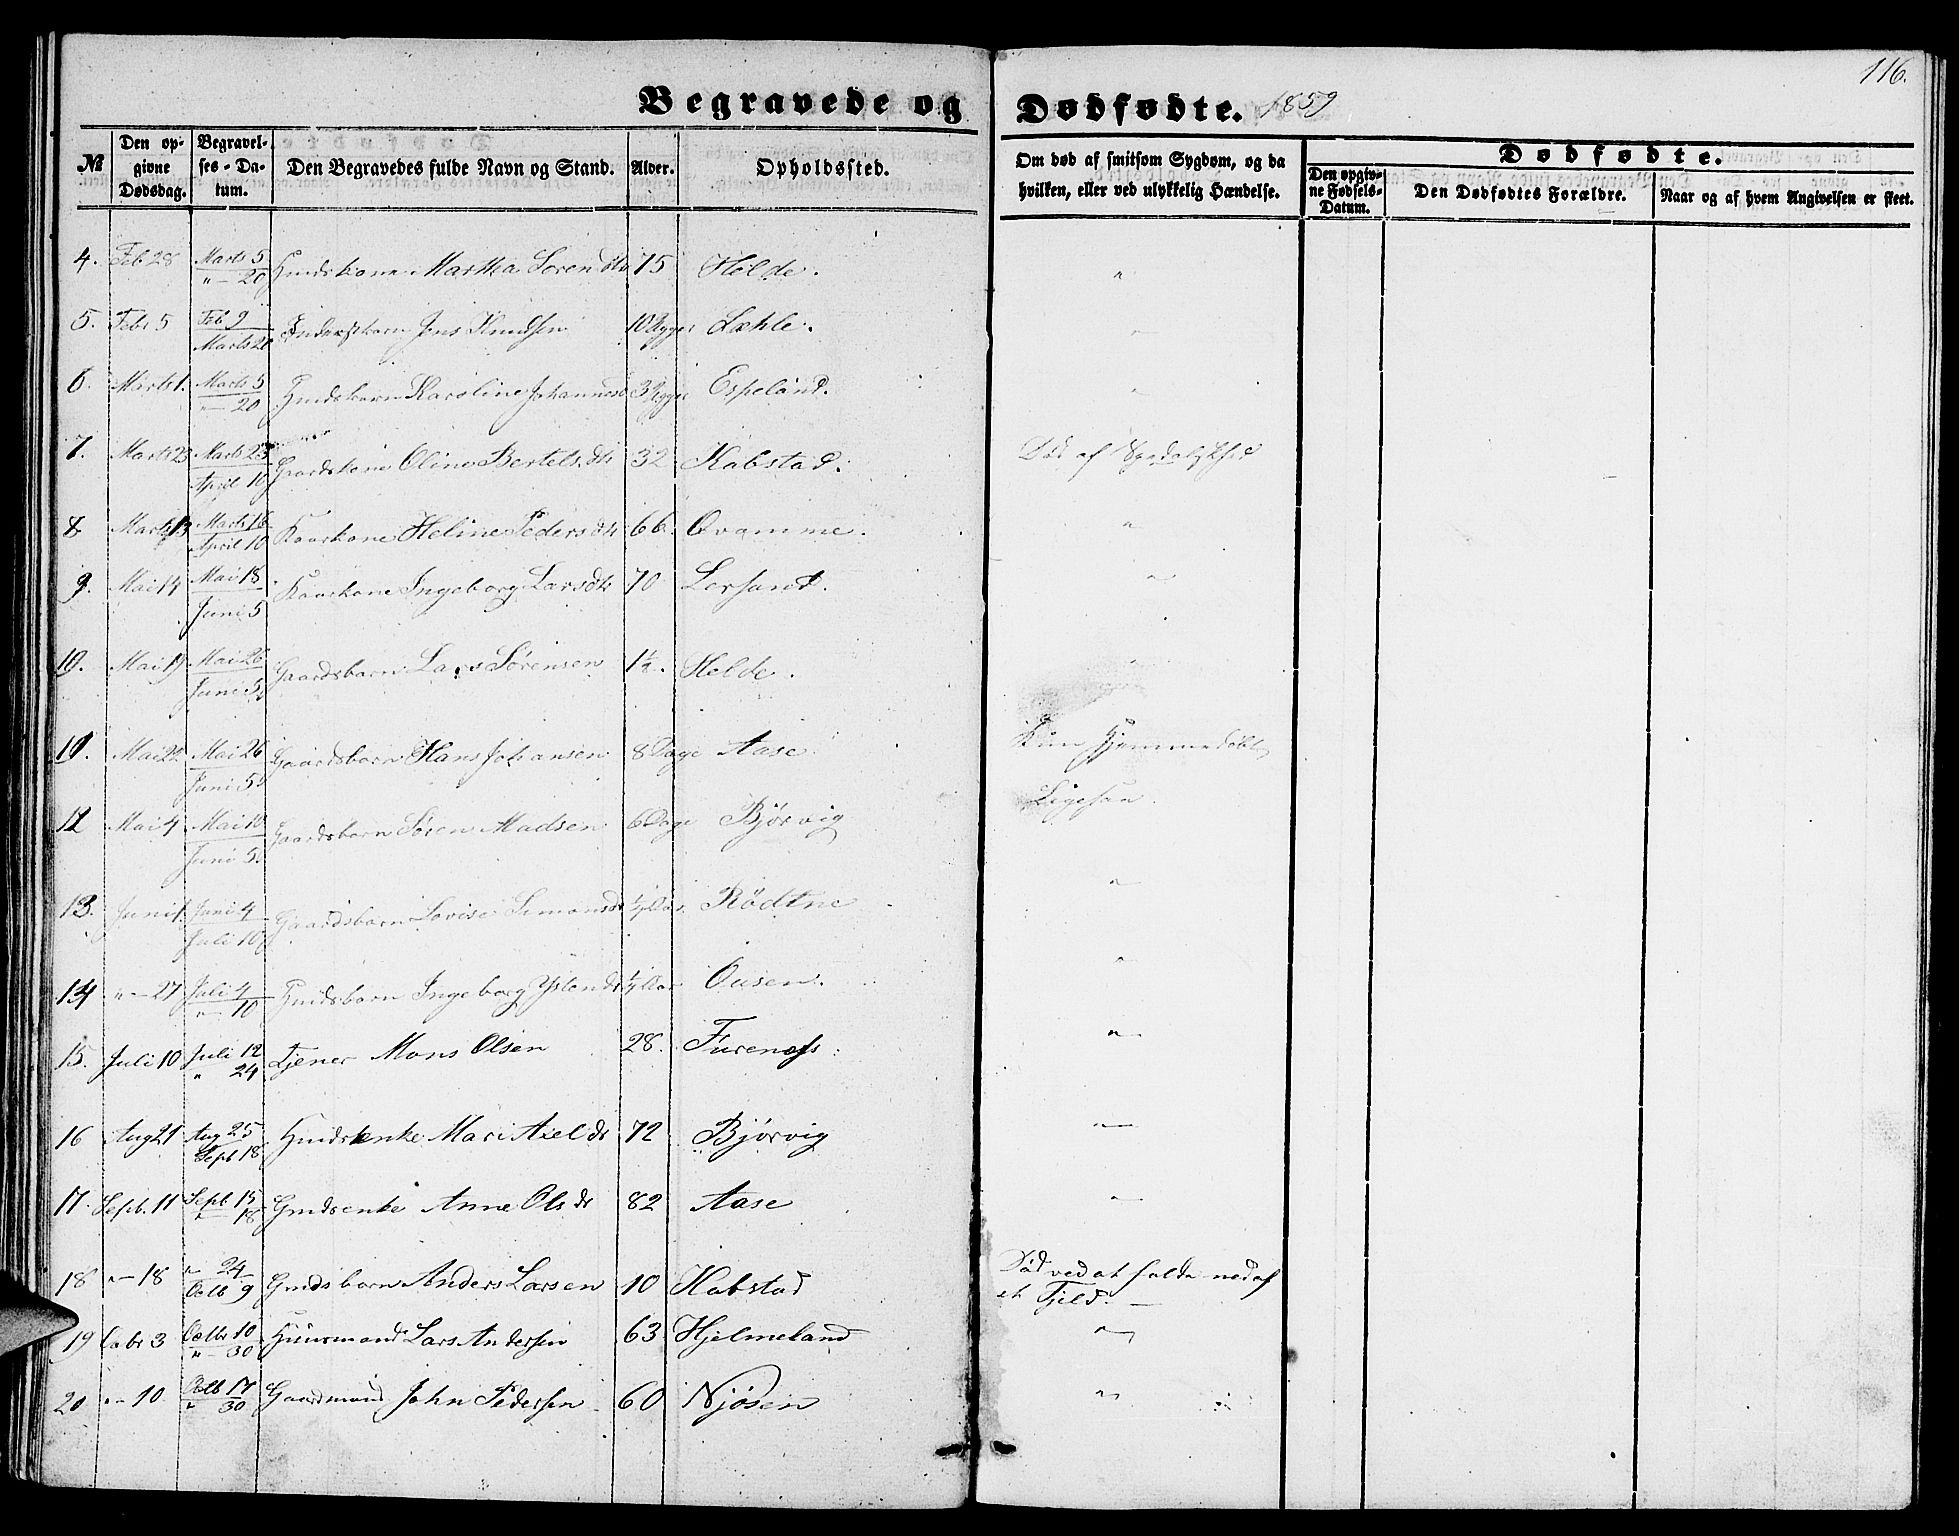 116.
Begravede og Dødfødte. 1859
№ Den opgivne Dødsdag. Begravelses-Datum. Den Begravedes fulde Navn og Stand. Alder. Opholdssted. Om død af smitsom Sygdom, og da hvilken, eller ved ulykkelig Hændelse. Dødfødte. Den opgivne Fødsels-Datum. Den Dødfødtes Forældre. Naar og af hvem Angivelsen er skeet.
4. Feb 28 Marts 5 " — 20 Martha Soren dtr 75 Helde. "
5. Febr 5 Feb 9 Marts 20 Jens Knudsen 10 Uger "
6. Marts 1. Marts 5 " — 20 Karoline Johannesd 3 Uger Espeland. "
7. Marts 23 Marts 25 April 10 Gaardskone Oline Bertels dtr 32 Kabstad. Død af Spedalskhed
8 Marts 13 Marts 16 April 10 Kaarkone Heline Peders dtr 66. Qvamme. "
9. Mai 14 Mai 18 Juni 5 Kaarkone Ingeborg Lars dtr 70 "
10. Mai 19 Mai 26 Juni 5 Gaardsbarn Lars Sørensen Helde. "
11. Mai 26 Juni 5 Gaardsbarn Hans Johansen 8 Dage Aase. Kun Hjemmedøbt
12 Mai 4 Mai 10 Juni 5. Gaardsbarn Søren Madsen 6 Dage Bjørvig Ligesaa.
13. Juni 1. Juni 4 Juli 10 Gaardsbarn Lovise Simonsdr "
14 " — 27 Juli 4 " — 10 Ingeborg Ousen. "
15. Juli 10 Juli 12 " 24 Tjener Mons Olsen 28. Furenæss "
16 Aug 21 Aug 25 Sept 18 Mari Axel dr 72 Bjørvig "
17. Sept. 11 Sept 15 " 18 Gmdsenke Anne Ols dr 82 Aase "
18 " — 18 " 24 Octb 9 Gmdsbarn Anders Larsen 10 Kabstad Død ved at falde ned af
et Fjeld. —
19 Octbr 10 " — 30 Huusmand Lars Andersen 63 Hjelmeland "
20 " — 10 Octb 17 " 30 Gaardmand John Pedersen 60 Njøsen "